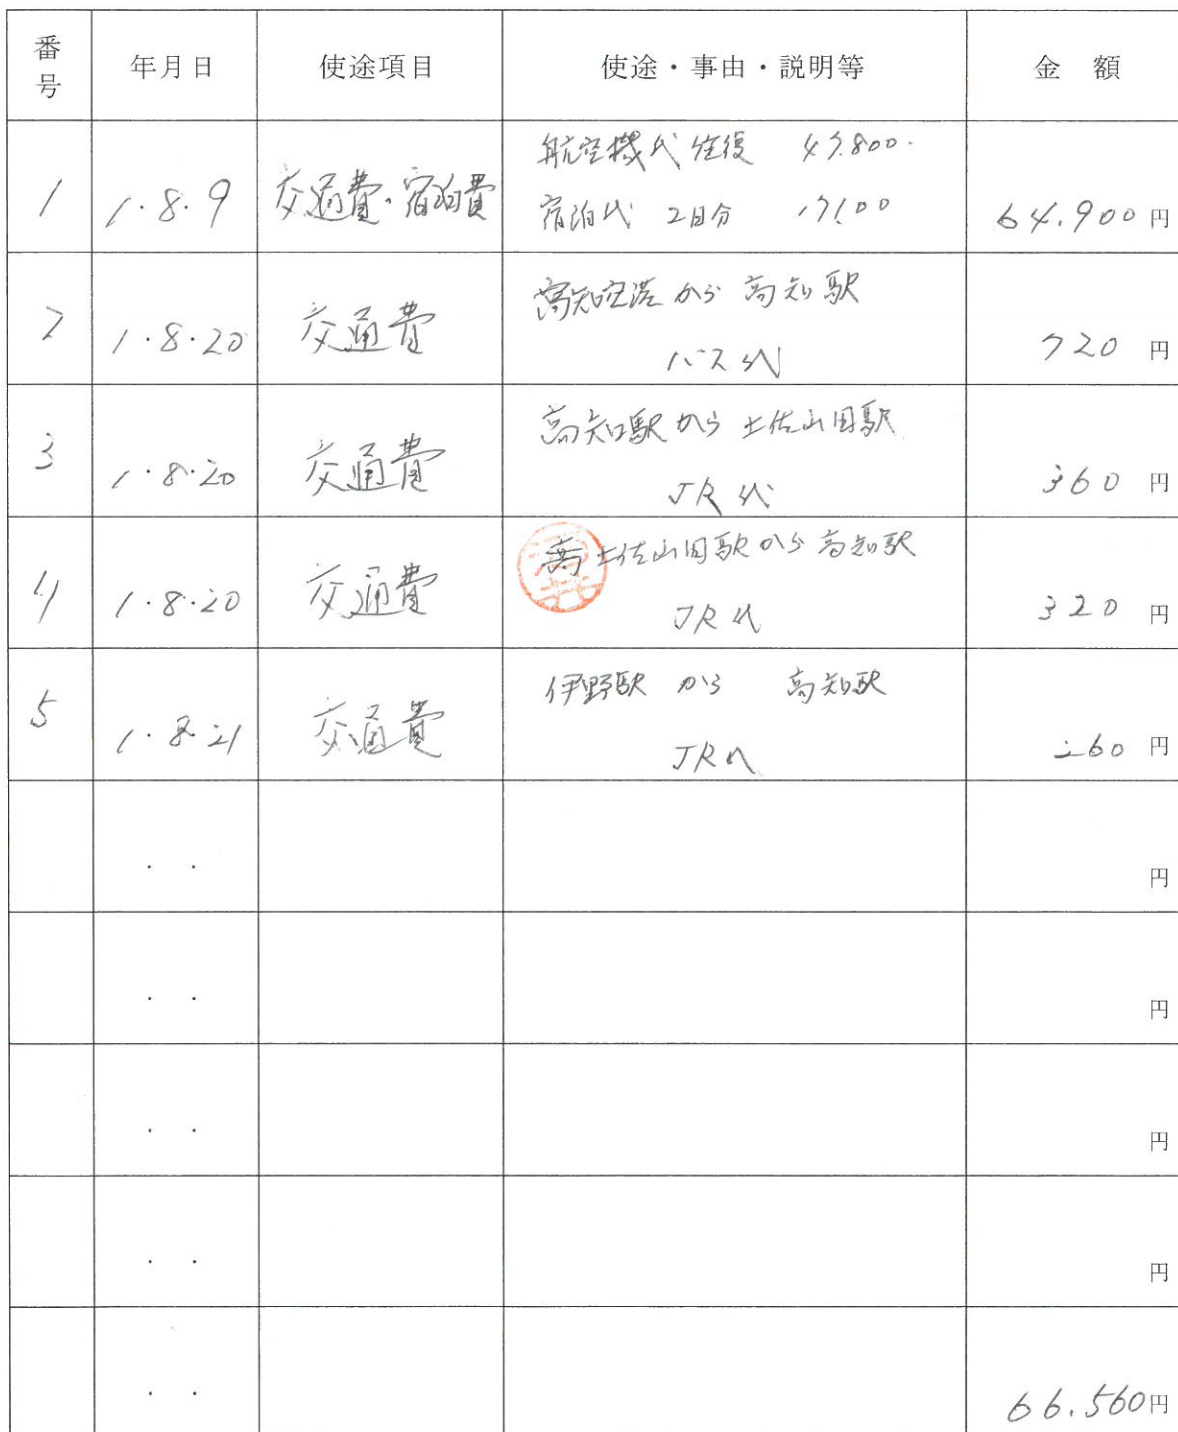 番号 年月日 使途項目 使途・事由・説明等 金額
1 1.8.9 交通費・宿泊費 航空機代 往復 47.800.
宿泊代 2日分 17100 64.900円
2 1.8.20 交通費 高知空港から高知駅
バス代 720円
3 1.8.20 交通費 高知駅から土佐山田駅
JR代 360円
4 1.8.20 交通費 土佐山田駅から高知駅
JR代 320円
5 1.8.21 交通費 伊野駅から 高知駅
JR代 260円
. . 円
. . 円
. . 円
. . 円
. . 66.560円